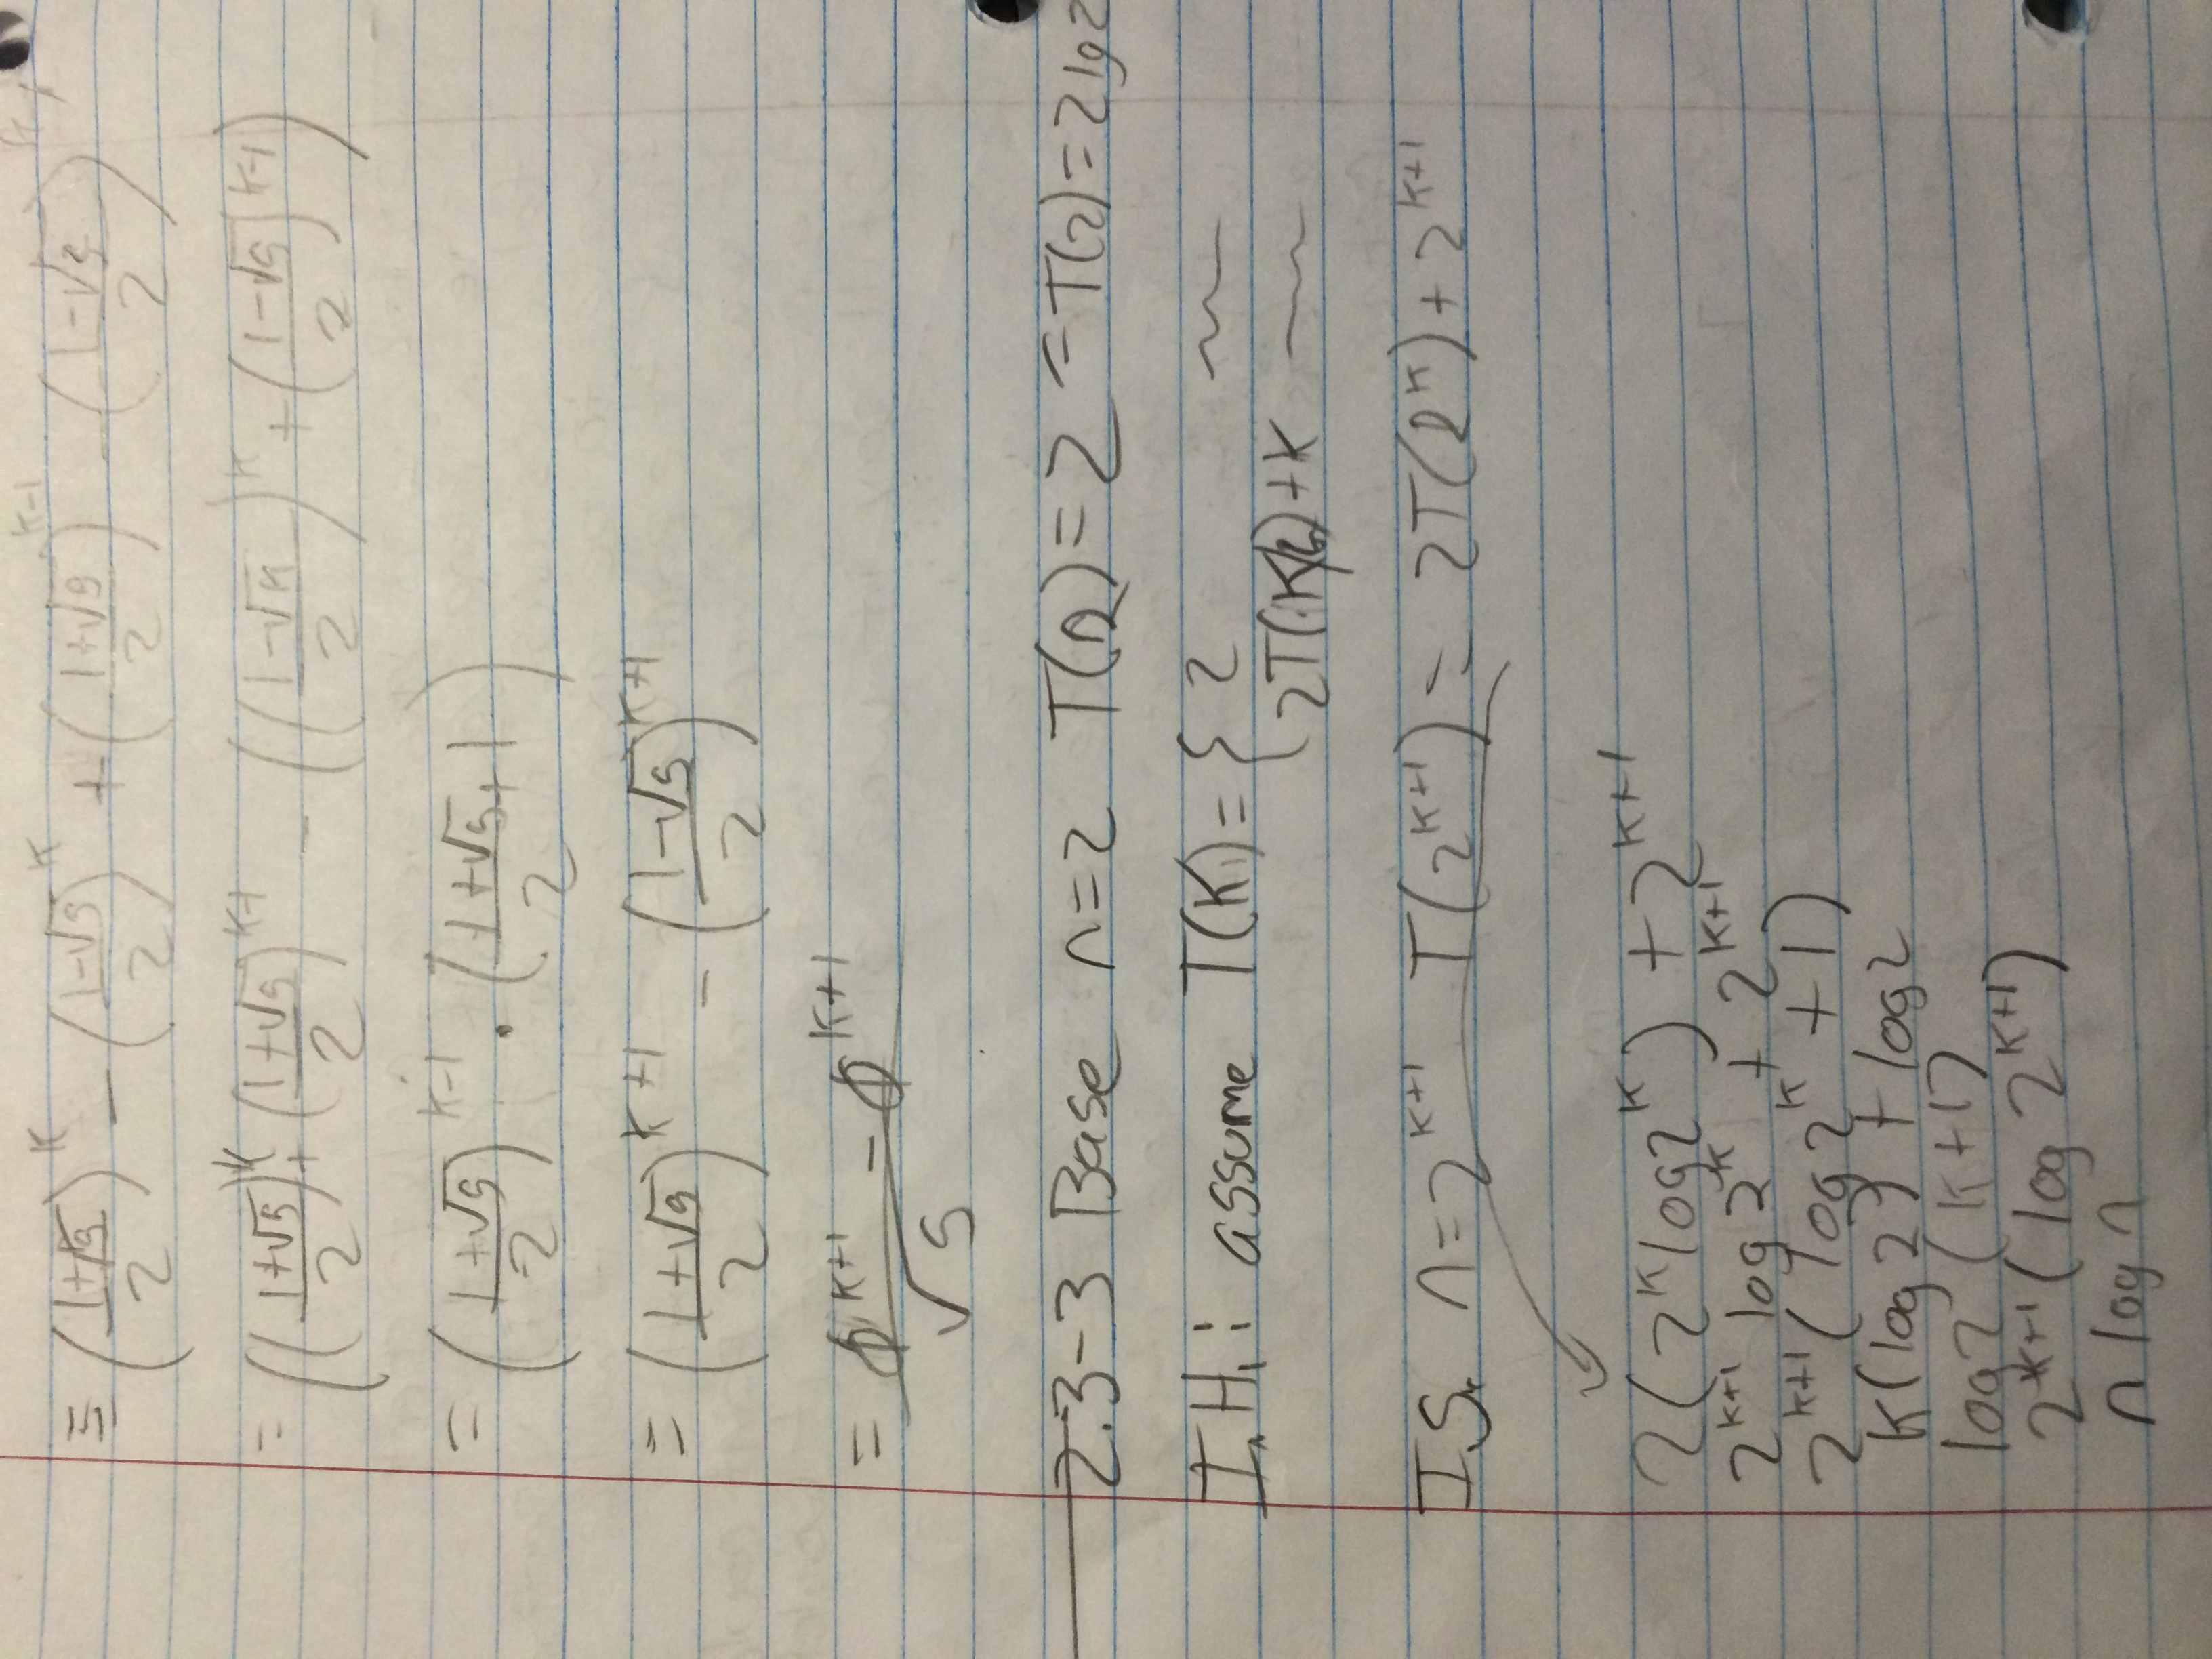 = (1+√5/2)^k - (1-√5/2)^k + (1+√5/2)^k-1 - (1-√5/2)
= ((1+√5/2)^k + (1+√5/2)^k-1 - ((1-√5/2)^k + (1-√5/2)^k-1)
= (1+√5/2)^k-1 · (1+√5/2 + 1)
= (1+√5/2)^k+1 - (1-√5/2)^k+1
= ϕ^k+1 - ϕ^k+1 / √5
2.3-3 Base n=2 T(2) = 2 = T(2) = 2 lg 2
I.H.: assume T(k) = { 2
2T(k/2)+k
I.S. n=2^k+1 T(2^k+1) = 2T(2^k) + 2^k+1
2(2^k log2^k) + 2^k+1
2^k+1 log 2^k + 2^k+1
2^k+1 (log 2^k + 1)
k(log 2) + log 2
log 2 (k+1)
2^k+1 (log 2^k+1)
n log n